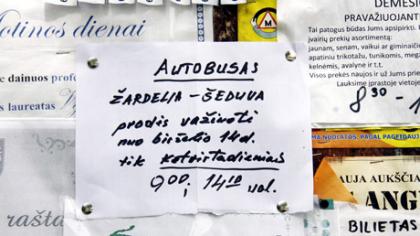 otinos dienai
e dainuos profe
s laureatas Vy
rašta
AUTOBUSAS
ŽARDELIA - ŠEDUVA
prodės važinėti
nuo birželio 14 d.
tik ketvirtadieniais
9 00 ; 14 10 val.
DĖMESIO
PRAVAŽIUOJANT
Tai patogus būdas Jums apsipirkti.
įvairių prekių asortimentu:
jaunam, senam, vaikui ar giminaičiui
apatiniu trikotažu, tunikomis, megztu
kelnėmis, avalyne ir t.t.
Visos prekės naujos ir už Jums prieina
Lauksime įprastoje vietoje
8 30 - 1
MA NUOLATOS, PAGAL PAGEIDAUJ
AUJA AUKŠČIA
ANG
BILIETAS